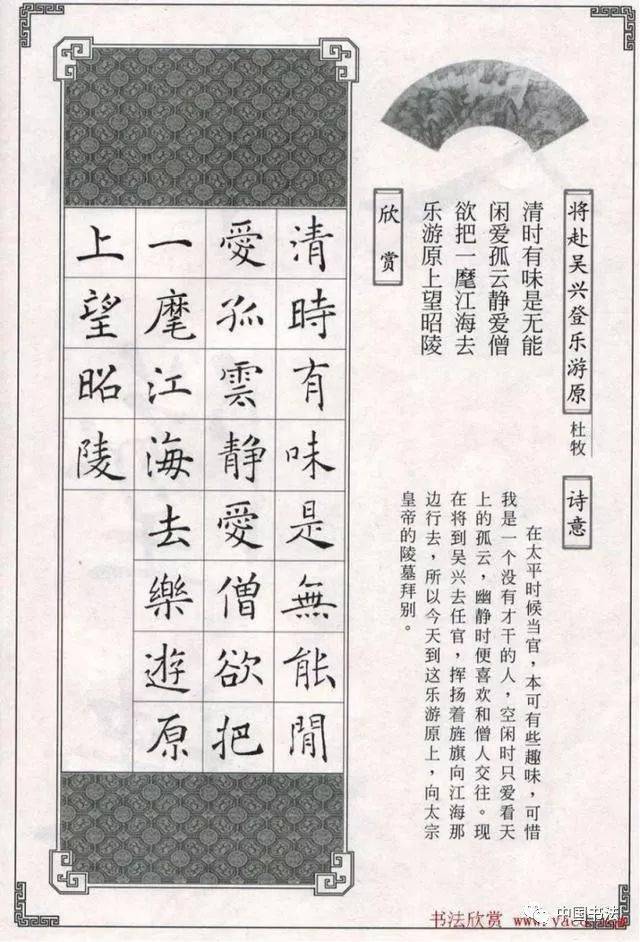 将赴吴兴登乐游原
杜牧
清时有味是无能
闲爱孤云静爱僧
欲把一麾江海去
乐游原上望昭陵
诗意
在太平时候当官，本可有些趣味，可惜
我是一个没有才干的人，空闲时只爱看天
上的孤云，幽静时便喜欢和僧人交往。现
在将到吴兴去任官，挥扬着旌旗向江海那
边行去，所以今天到这乐游原上，向太宗
皇帝的陵墓拜别。
欣赏
清時有味是無能閒
愛孤雲静愛僧欲把
一麾江海去樂遊原
上望昭陵
书法欣赏
中国书法